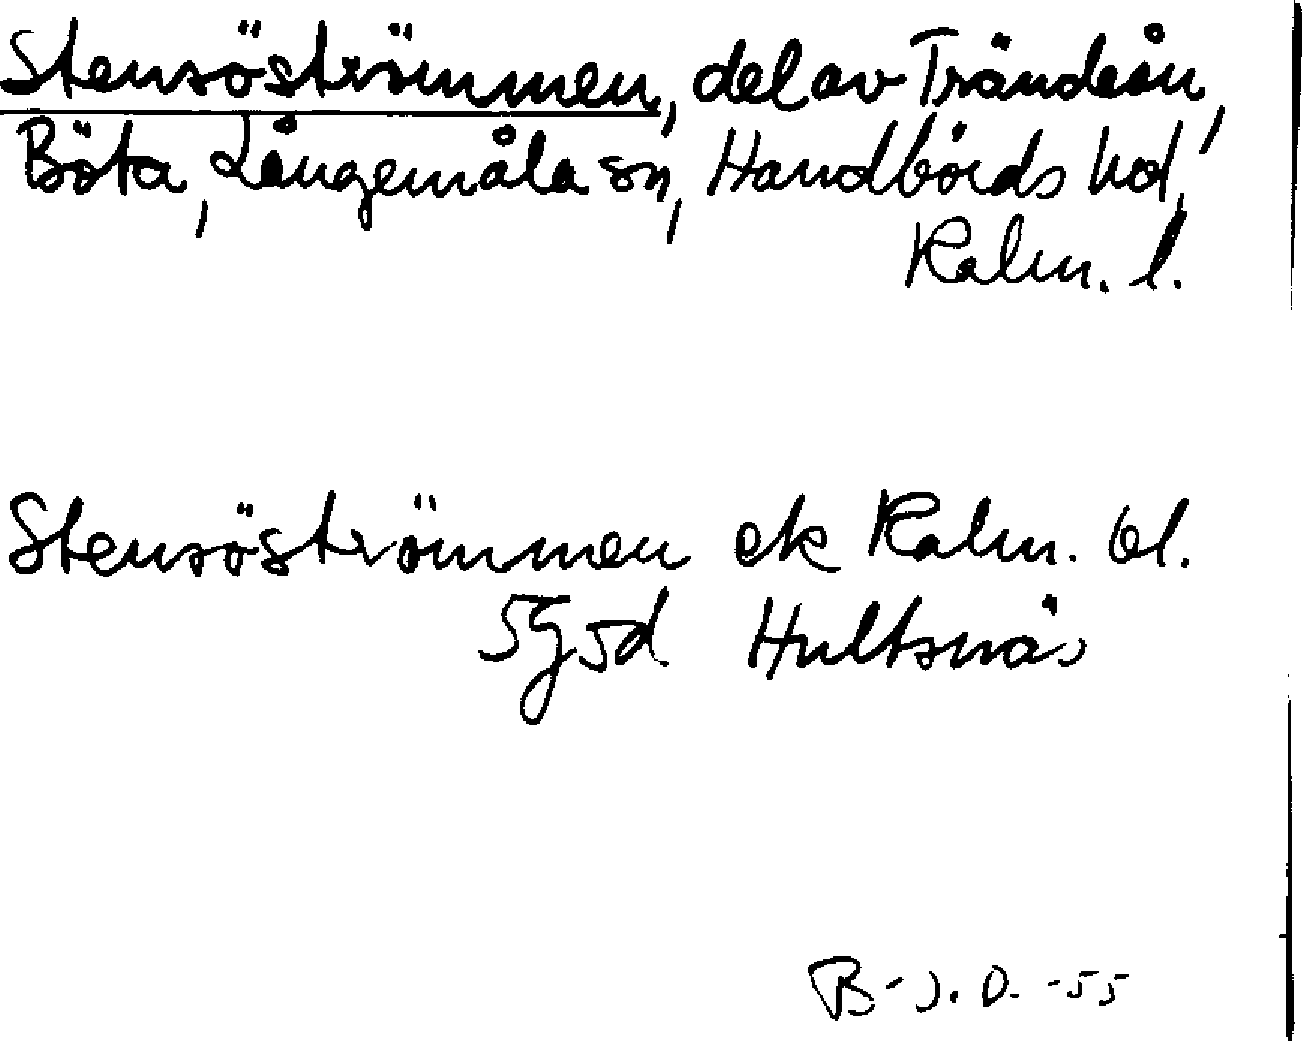 Stensöströmmen, del av Trändeån,
Böta, Långemåla sn, Handbörds hd,
Kalm. l.
Stensöströmmen ek Kalm. bl.
5G5d Hultsnäs
B-J. O. -55